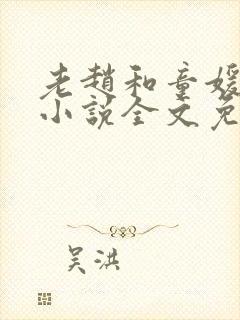 老趙和童媛
小說全文免
吳洪